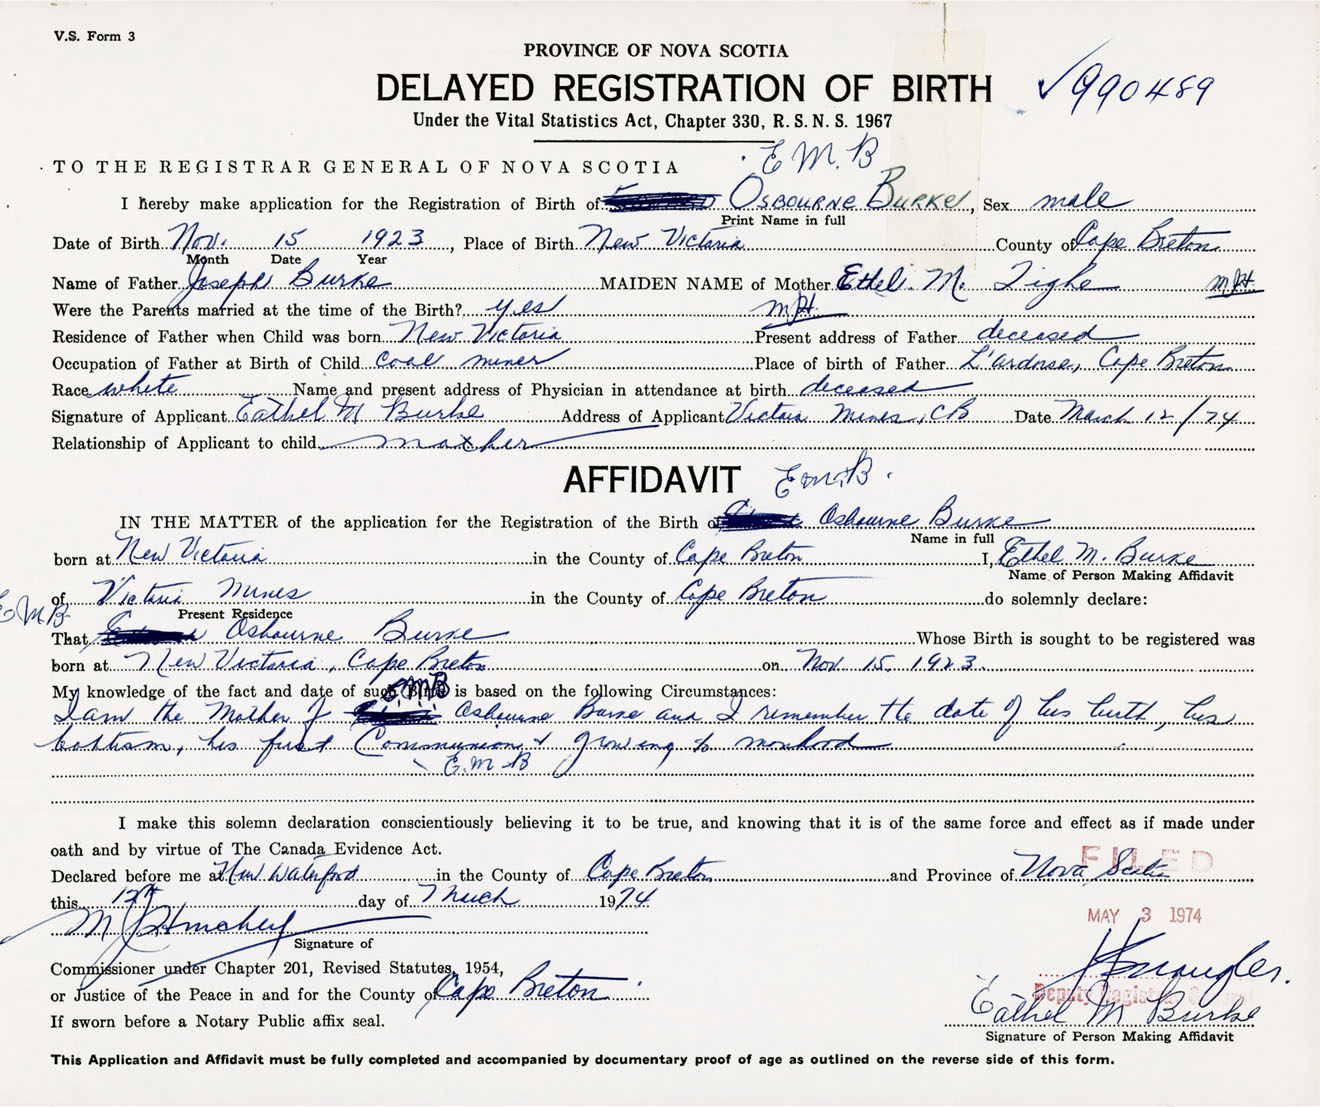 V.S. Form 3
PROVINCE OF NOVA SCOTIA
DELAYED REGISTRATION OF BIRTH
√990489
Under the Vital Statistics Act, Chapter 330, R. S. N. S. 1967
E M. B
TO THE REGISTRAR GENERAL OF NOVA SCOTIA
I hereby make application for the Registration of Birth of OSBOURNE BURKE, Sex male
Print Name in full
Date of Birth Nov. 15 1923, Place of Birth New Victoria County of Cape Breton
Month Date Year
Name of Father Joseph Burke MAIDEN NAME of Mother Ethel M. Tighe MJH.
Were the Parents married at the time of the Birth? yes MJH.
Residence of Father when Child was born New Victoria Present address of Father deceased
Occupation of Father at Birth of Child coal miner Place of birth of Father L'ardose, Cape Breton
Race white Name and present address of Physician in attendance at birth deceased
Signature of Applicant Eathel M Burke Address of Applicant Victoria Mines, CB Date March 12/74
Relationship of Applicant to child mother
AFFIDAVIT E M. B.
IN THE MATTER of the application for the Registration of the Birth of Osbourne Burke
Name in full
born at New Victoria in the County of Cape Breton I, Ethel M. Burke
Name of Person Making Affidavit
of Victoria Mines in the County of Cape Breton do solemnly declare:
E M B Present Residence
That Osbourne Burke Whose Birth is sought to be registered was
born at New Victoria, Cape Breton on Nov 15, 1923.
My knowledge of the fact and date of such Birth is based on the following Circumstances:
E M B
I am the Mother of Osbourne Burke and I remember the date of his birth, his
babtism, his first Communion & growing to manhood
E. M B
I make this solemn declaration conscientiously believing it to be true, and knowing that it is of the same force and effect as if made under
oath and by virtue of The Canada Evidence Act.
Declared before me at New Waterford in the County of Cape Breton and Province of Nova Scotia
FILED
this 12th day of March 1974
MAY 3 1974
Signature of
Commissioner under Chapter 201, Revised Statutes, 1954,
or Justice of the Peace in and for the County of Cape Breton
Deputy Registrar General
If sworn before a Notary Public affix seal.
Eathel M Burke
Signature of Person Making Affidavit
This Application and Affidavit must be fully completed and accompanied by documentary proof of age as outlined on the reverse side of this form.